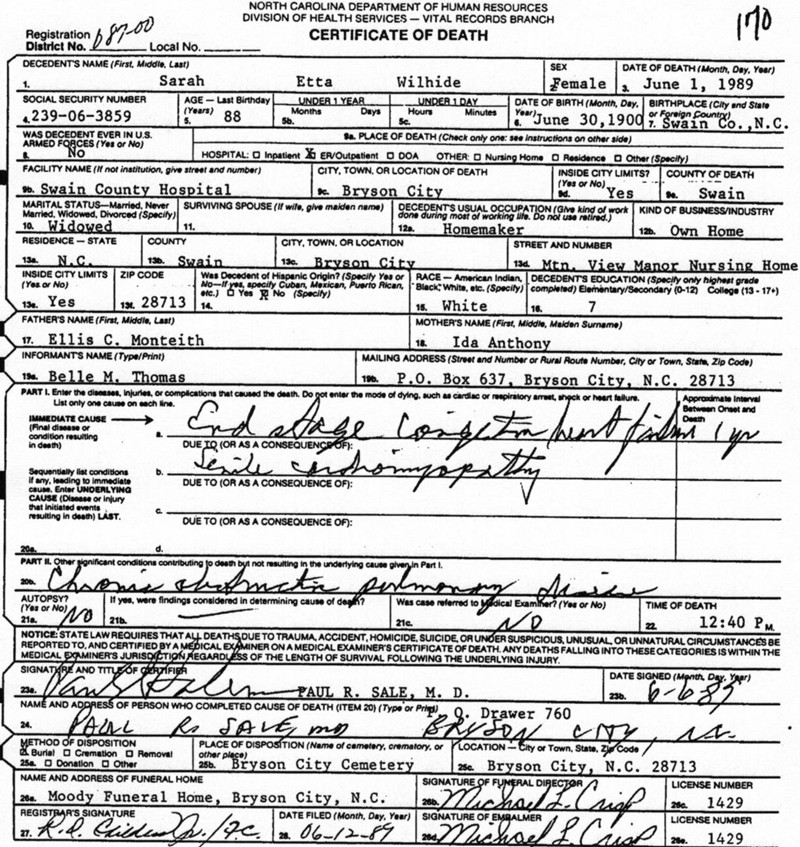 NORTH CAROLINA DEPARTMENT OF HUMAN RESOURCES
DIVISION OF HEALTH SERVICES — VITAL RECORDS BRANCH
CERTIFICATE OF DEATH
170
Registration
District No. 087-00 Local No.
DECEDENT'S NAME (First, Middle, Last) SEX DATE OF DEATH (Month, Day, Year)
1. Sarah Etta Wilhide 2. Female 3. June 1, 1989
SOCIAL SECURITY NUMBER AGE — Last Birthday UNDER 1 YEAR UNDER 1 DAY DATE OF BIRTH (Month, Day, BIRTHPLACE (City and State
(Years) Months Days Hours Minutes Year) or Foreign Country)
4. 239-06-3859 5. 88 5b. 5c. 6. June 30,1900 7. Swain Co.,N.C.
WAS DECEDENT EVER IN U.S. 9a. PLACE OF DEATH (Check only one: see instructions on other side)
ARMED FORCES (Yes or No)
8. No HOSPITAL: ☐ Inpatient ☒ ER/Outpatient ☐ DOA OTHER: ☐ Nursing Home ☐ Residence ☐ Other (Specify)
FACILITY NAME (If not institution, give street and number) CITY, TOWN, OR LOCATION OF DEATH INSIDE CITY LIMITS? COUNTY OF DEATH
(Yes or No)
9b. Swain County Hospital 9c. Bryson City 9d. Yes 9e. Swain
MARITAL STATUS—Married, Never SURVIVING SPOUSE (If wife, give maiden name) DECEDENT'S USUAL OCCUPATION (Give kind of work KIND OF BUSINESS/INDUSTRY
Married, Widowed, Divorced (Specify) done during most of working life. Do not use retired.)
10. Widowed 11. 12a. Homemaker 12b. Own Home
RESIDENCE – STATE COUNTY CITY, TOWN, OR LOCATION STREET AND NUMBER
13a. N.C. 13b. Swain 13c. Bryson City 13d. Mtn. View Manor Nursing Home
INSIDE CITY LIMITS ZIP CODE Was Decedent of Hispanic Origin? (Specify Yes or RACE – American Indian, DECEDENT'S EDUCATION (Specify only highest grade
(Yes or No) No—If yes, specify Cuban, Mexican, Puerto Rican, Black, White, etc. (Specify) completed) Elementary/Secondary (0-12) College (13 - 17+)
etc.) ☐ Yes ☒ No (Specify)
13e. Yes 13f. 28713 14. 15. White 16. 7
FATHER'S NAME (First, Middle, Last) MOTHER'S NAME (First, Middle, Maiden Surname)
17. Ellis C. Monteith 18. Ida Anthony
INFORMANT'S NAME (Type/Print) MAILING ADDRESS (Street and Number or Rural Route Number, City or Town, State, Zip Code)
19a. Belle M. Thomas 19b. P.O. Box 637, Bryson City, N.C. 28713
PART I. Enter the diseases, injuries, or complications that caused the death. Do not enter the mode of dying, such as cardiac or respiratory arrest, shock or heart failure. Approximate Interval
List only one cause on each line. Between Onset and
Death
IMMEDIATE CAUSE
(Final disease or
condition resulting
in death)
a. End stage congestive heart failure 1 yr
DUE TO (OR AS A CONSEQUENCE OF):
Sequentially list conditions
if any, leading to immediate
cause. Enter UNDERLYING
CAUSE (Disease or injury
that initiated events
resulting in death) LAST.
b. Senile cardiomyopathy
DUE TO (OR AS A CONSEQUENCE OF):
c.
DUE TO (OR AS A CONSEQUENCE OF):
20a. d.
PART II. Other significant conditions contributing to death but not resulting in the underlying cause given in Part I.
20b. Chronic obstructive pulmonary disease
AUTOPSY? If yes, were findings considered in determining cause of death? Was case referred to Medical Examiner? TIME OF DEATH
(Yes or No) (Yes or No)
21a. NO 21b. — 21c. NO 22. 12:40 P M.
NOTICE: STATE LAW REQUIRES THAT ALL DEATHS DUE TO TRAUMA, ACCIDENT, HOMICIDE, SUICIDE, OR UNDER SUSPICIOUS, UNUSUAL, OR UNNATURAL CIRCUMSTANCES BE
REPORTED TO, AND CERTIFIED BY A MEDICAL EXAMINER ON A MEDICAL EXAMINER'S CERTIFICATE OF DEATH. ANY DEATHS FALLING INTO THESE CATEGORIES IS WITHIN THE
MEDICAL EXAMINER'S JURISDICTION REGARDLESS OF THE LENGTH OF SURVIVAL FOLLOWING THE UNDERLYING INJURY.
SIGNATURE AND TITLE OF CERTIFIER DATE SIGNED (Month, Day, Year)
23a. Paul R Sale MD PAUL R. SALE, M. D. 23b. 6-6-89
NAME AND ADDRESS OF PERSON WHO COMPLETED CAUSE OF DEATH (ITEM 20) (Type or Print) P. O. Drawer 760
24. PAUL R. SALE, MD BRYSON CITY, N.C.
METHOD OF DISPOSITION PLACE OF DISPOSITION (Name of cemetery, crematory, or LOCATION — City or Town, State, Zip Code
☒ Burial ☐ Cremation ☐ Removal other place)
25a. ☐ Donation ☐ Other 25b. Bryson City Cemetery 25c. Bryson City, N.C. 28713
NAME AND ADDRESS OF FUNERAL HOME SIGNATURE OF FUNERAL DIRECTOR LICENSE NUMBER
26a. Moody Funeral Home, Bryson City, N.C. 26b. Michael L. Crisp 26c. 1429
REGISTRAR'S SIGNATURE DATE FILED (Month, Day, Year) SIGNATURE OF EMBALMER LICENSE NUMBER
27. 28. 06-12-89 26d. Michael L. Crisp 26e. 1429